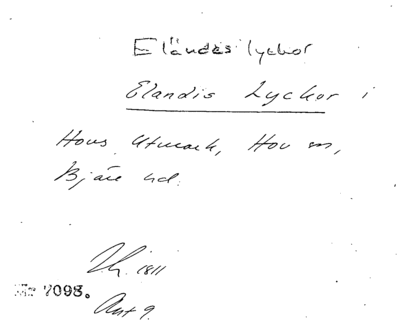 Eländes lyckor
Elandis Lyckor i
Hovs Utmark, Hov sn,
Bjäre hd.
1811
7098.
Akt 9.